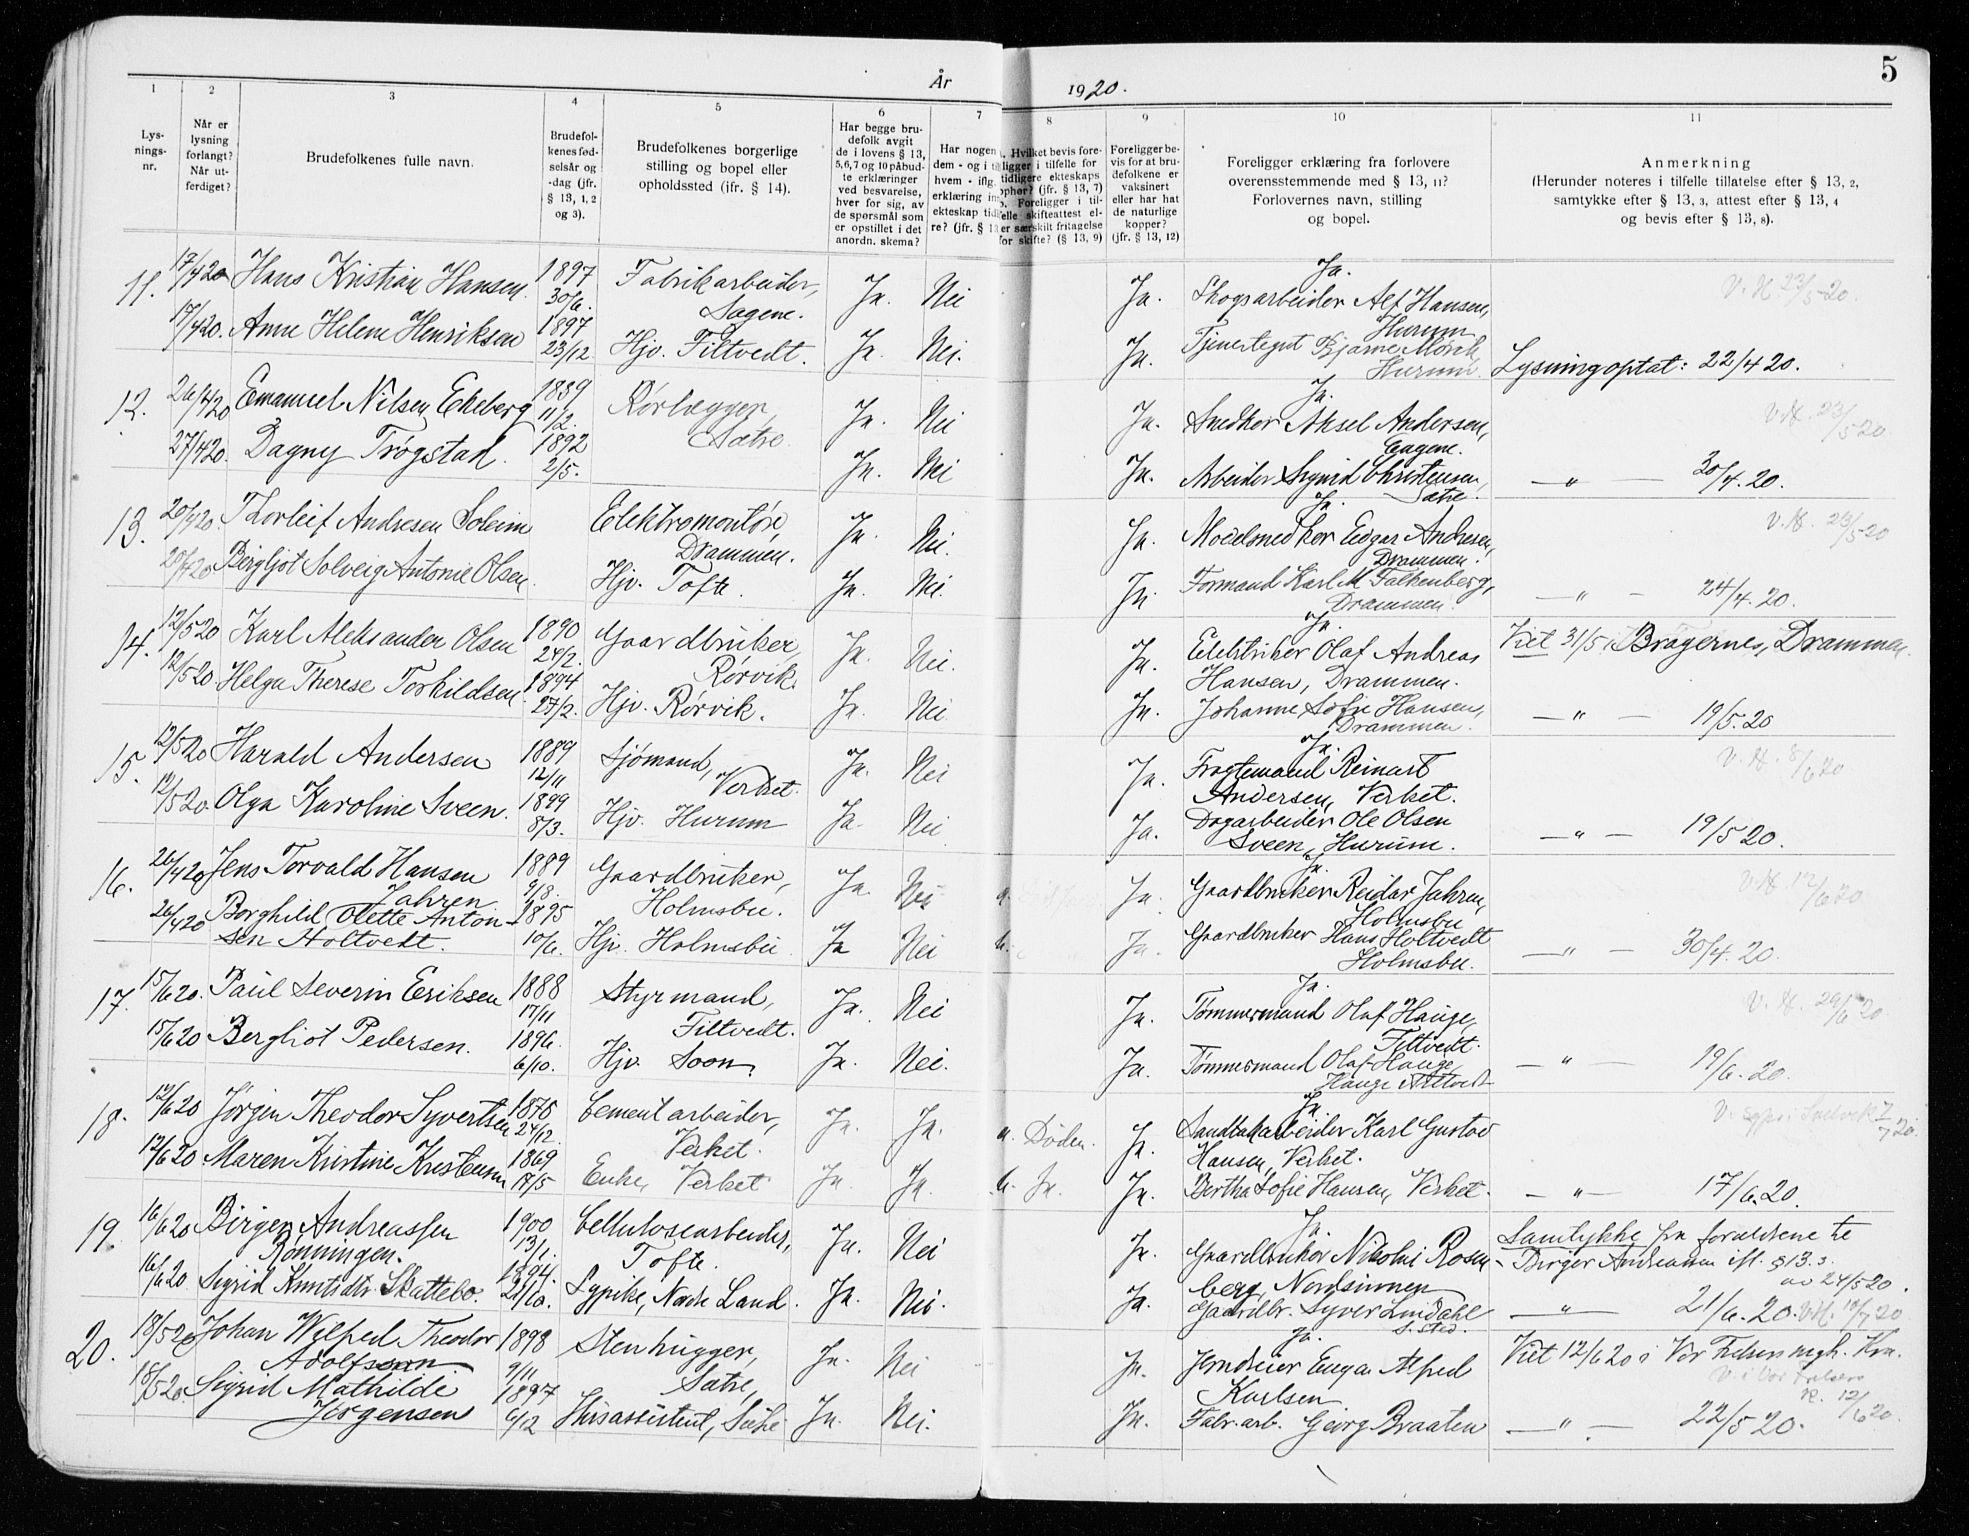 År 1920. 5
1 2 3 4 5 6 7 8 9 10 11
Lys-
nings-
nr.
Når er
lysning
forlangt?
Når ut-
ferdiget?
Brudefolkenes fulle navn.
Brudefol-
kenes fød-
selsår og
-dag (jfr.
§ 13, 1, 2
og 3).
Brudefolkenes borgerlige
stilling og bopel eller
opholdssted (jfr. § 14).
Har begge bru-
defolk avgit
de i lovens § 13,
5, 6, 7 og 10 påbud-
te erklæringer
ved besvarelse,
hver for sig, av
de spørsmål som
er opstillet i det
anordn. skema?
Har nogen
dem - og i
hvem - iflg.
erklæring
ekteskap tid
re? (jfr. § 1
Hvilket bevis fore-
ligger i tilfelle for
tidligere ekteskaps
ophør? (jfr. § 13, 7)
Foreligger i til-
felle skifteattest el-
er særskilt fritagelse
for skifte? (§ 13, 9)
Foreligger be-
vis for at bru-
defolkene er
vaksinert
eller har hat
de naturlige
kopper?
(jfr. § 13, 12)
Foreligger erklæring fra forlovere
overensstemmende med § 13, 11?
Forlovernes navn, stilling
og bopel.
Anmerkning
(Herunder noteres i tilfelle tillatelse efter § 13, 2,
samtykke efter § 13, 3, attest efter § 13, 4
og bevis efter § 13, 8).
11. 17/4 20 Hans Kristian Hansen 1897 30/6. Fabrikarbeider, Sagene. Ja. Nei Ja. Ja. Skogsarbeider Alf Hansen, Hurum V. H. 23/5-20.
17/4 20. Anne Helene Henriksen 1897 23/12 Hjv. Filtvedt. Ja. Nei. Ja. Tjenestegut Bjarne Mørck, Hurum Lysning optat: 22/4 20.
12. 26/4 20 Emanuel Nilsen Ekeberg 1889 11/2. Rørlægger, Sætre. Ja. Nei Ja. Ja. Snedker Aksel Andersen, Engene. V. H. 23/5 20
27/4 20. Dagny Trøgstad. 1892 2/5. Ja. Nei Ja. Arbeider Sigurd Christensen, Sætre. — " — 30/4. 20.
13. 20/4 20. Thorleif Andresen Soleim Elektromontør, Drammen. Ja. Nei. Ja. Ja. Modelsnedker Edgar Andresen, Drammen. V. H. 23/5-20
20/4 20 Bergljot Solveig Antonie Olsen. Hjv. Tofte. Ja. Nei. Ja. Formand Karl M Falkenberg, Drammen. — " — 24/4. 20.
14. 12/5 20 Karl Aleksander Olsen 1890 24/2. Gaardbruker, Rørvik. Ja. Nei. Ja. Ja. Elektriker Olaf Andreas Hansen, Drammen. Viet 31/5 i Bragernes, Drammen.
12/5 20. Helga Therese Torkildsen 1894 27/2. Hjv. Rørvik. Ja. Nei Ja. Johanne Sofie Hansen, Drammen. — " — 19/5. 20
15. 12/5 20 Harald Andersen 1889 12/11 Sjømand, Verket. Ja. Nei Ja. Ja. Fragtemand Reinart Andersen, Verket. V. H. 8/6 20
12/5 20 Olga Karoline Sveen. 1899 8/3. Hjv. Hurum Ja. Nei Ja. Dagarbeider Ole Olsen Sveen, Hurum. — " — 19/5 20.
16. 26/4 20 Jens Torvald Hansen Jahren 1889 9/8. Gaardbruker, Holmsbu. Ja. Nei a. Ja. Ja. Gaardbruker Reidar Jahren, Holmsbu V. H. 12/6 20
26/4 20 Borghild Olette Anton-
sen Holtvedt. 1895 10/6. Hjv. Holmsbu Ja Nei b. Ja. Gaardbruker Hans Holtvedt Holmsbu. — " — 30/4. 20.
17. 15/6 20. Paul Severin Eriksen 1888 17/11 Styrmand, Filtvedt. Ja. Nei Ja. Ja. Tømmermand Olaf Hauge, Filtvedt. V. H. 29/6 20
15/6 20 Bergliot Pedersen. 1896. 6/10. Hjv. Soon. Ja. Nei. Ja. Tømmermand Olaf Hauge, Hauge Filtvedt — " — 19/6. 20.
18. 12/6 20 Jørgen Theodor Syvertsen 1875 24/12. Cementarbeider, Verket. Ja. Ja. a. Døden. Ja. Ja. Sandtakarbeider Karl Gustav Hansen, Verket. 7/7 20.
12/6 20 Maren Kristine Kristensen 1869 17/5 Enke, Verket Ja. Ja. b. Ja. Ja. Bertha Sofie Hansen, Verket. — " — 17/6. 20.
19. 16/6 20 Birger Andreassen Rønningen. 1900 13/1. Cellulosearbeider, Tofte. Ja. Nei Ja. Ja. Gaardbruker Nikolai Rosen-
berg, Nordsinnen Samtykke fra forældrene te
Birger Andreassen ifl. § 13. 3. av 24/5 20.
16/6 20 Sigrid Knutsdtr Skattebo. 1894. 21/10. Sypike, Nordre Land. Ja. Nei. Ja. Gaardbr. Syver Lindahl S. sted. — " — 21/6. 20. V. H. 10/7 20
20. 18/5 20 Johan Wilfred Theodor Adolfsen 1898 9/11 Stenhugger, Sætre, Ja. Nei Ja. Ja. Jerndreier Eugen Alfred Karlsen Viet 12/6 20 i Vor Frelsers mgh. Kra.
V. i Vor Frelsers K. 12/6 20.
18/5 20. Sigrid Mathilde Jørgensen 1897 6/12 Husassistent, Sætre Ja. Nei. Ja. Fabr. arb. Georg Braaten — " — 22/5 20.